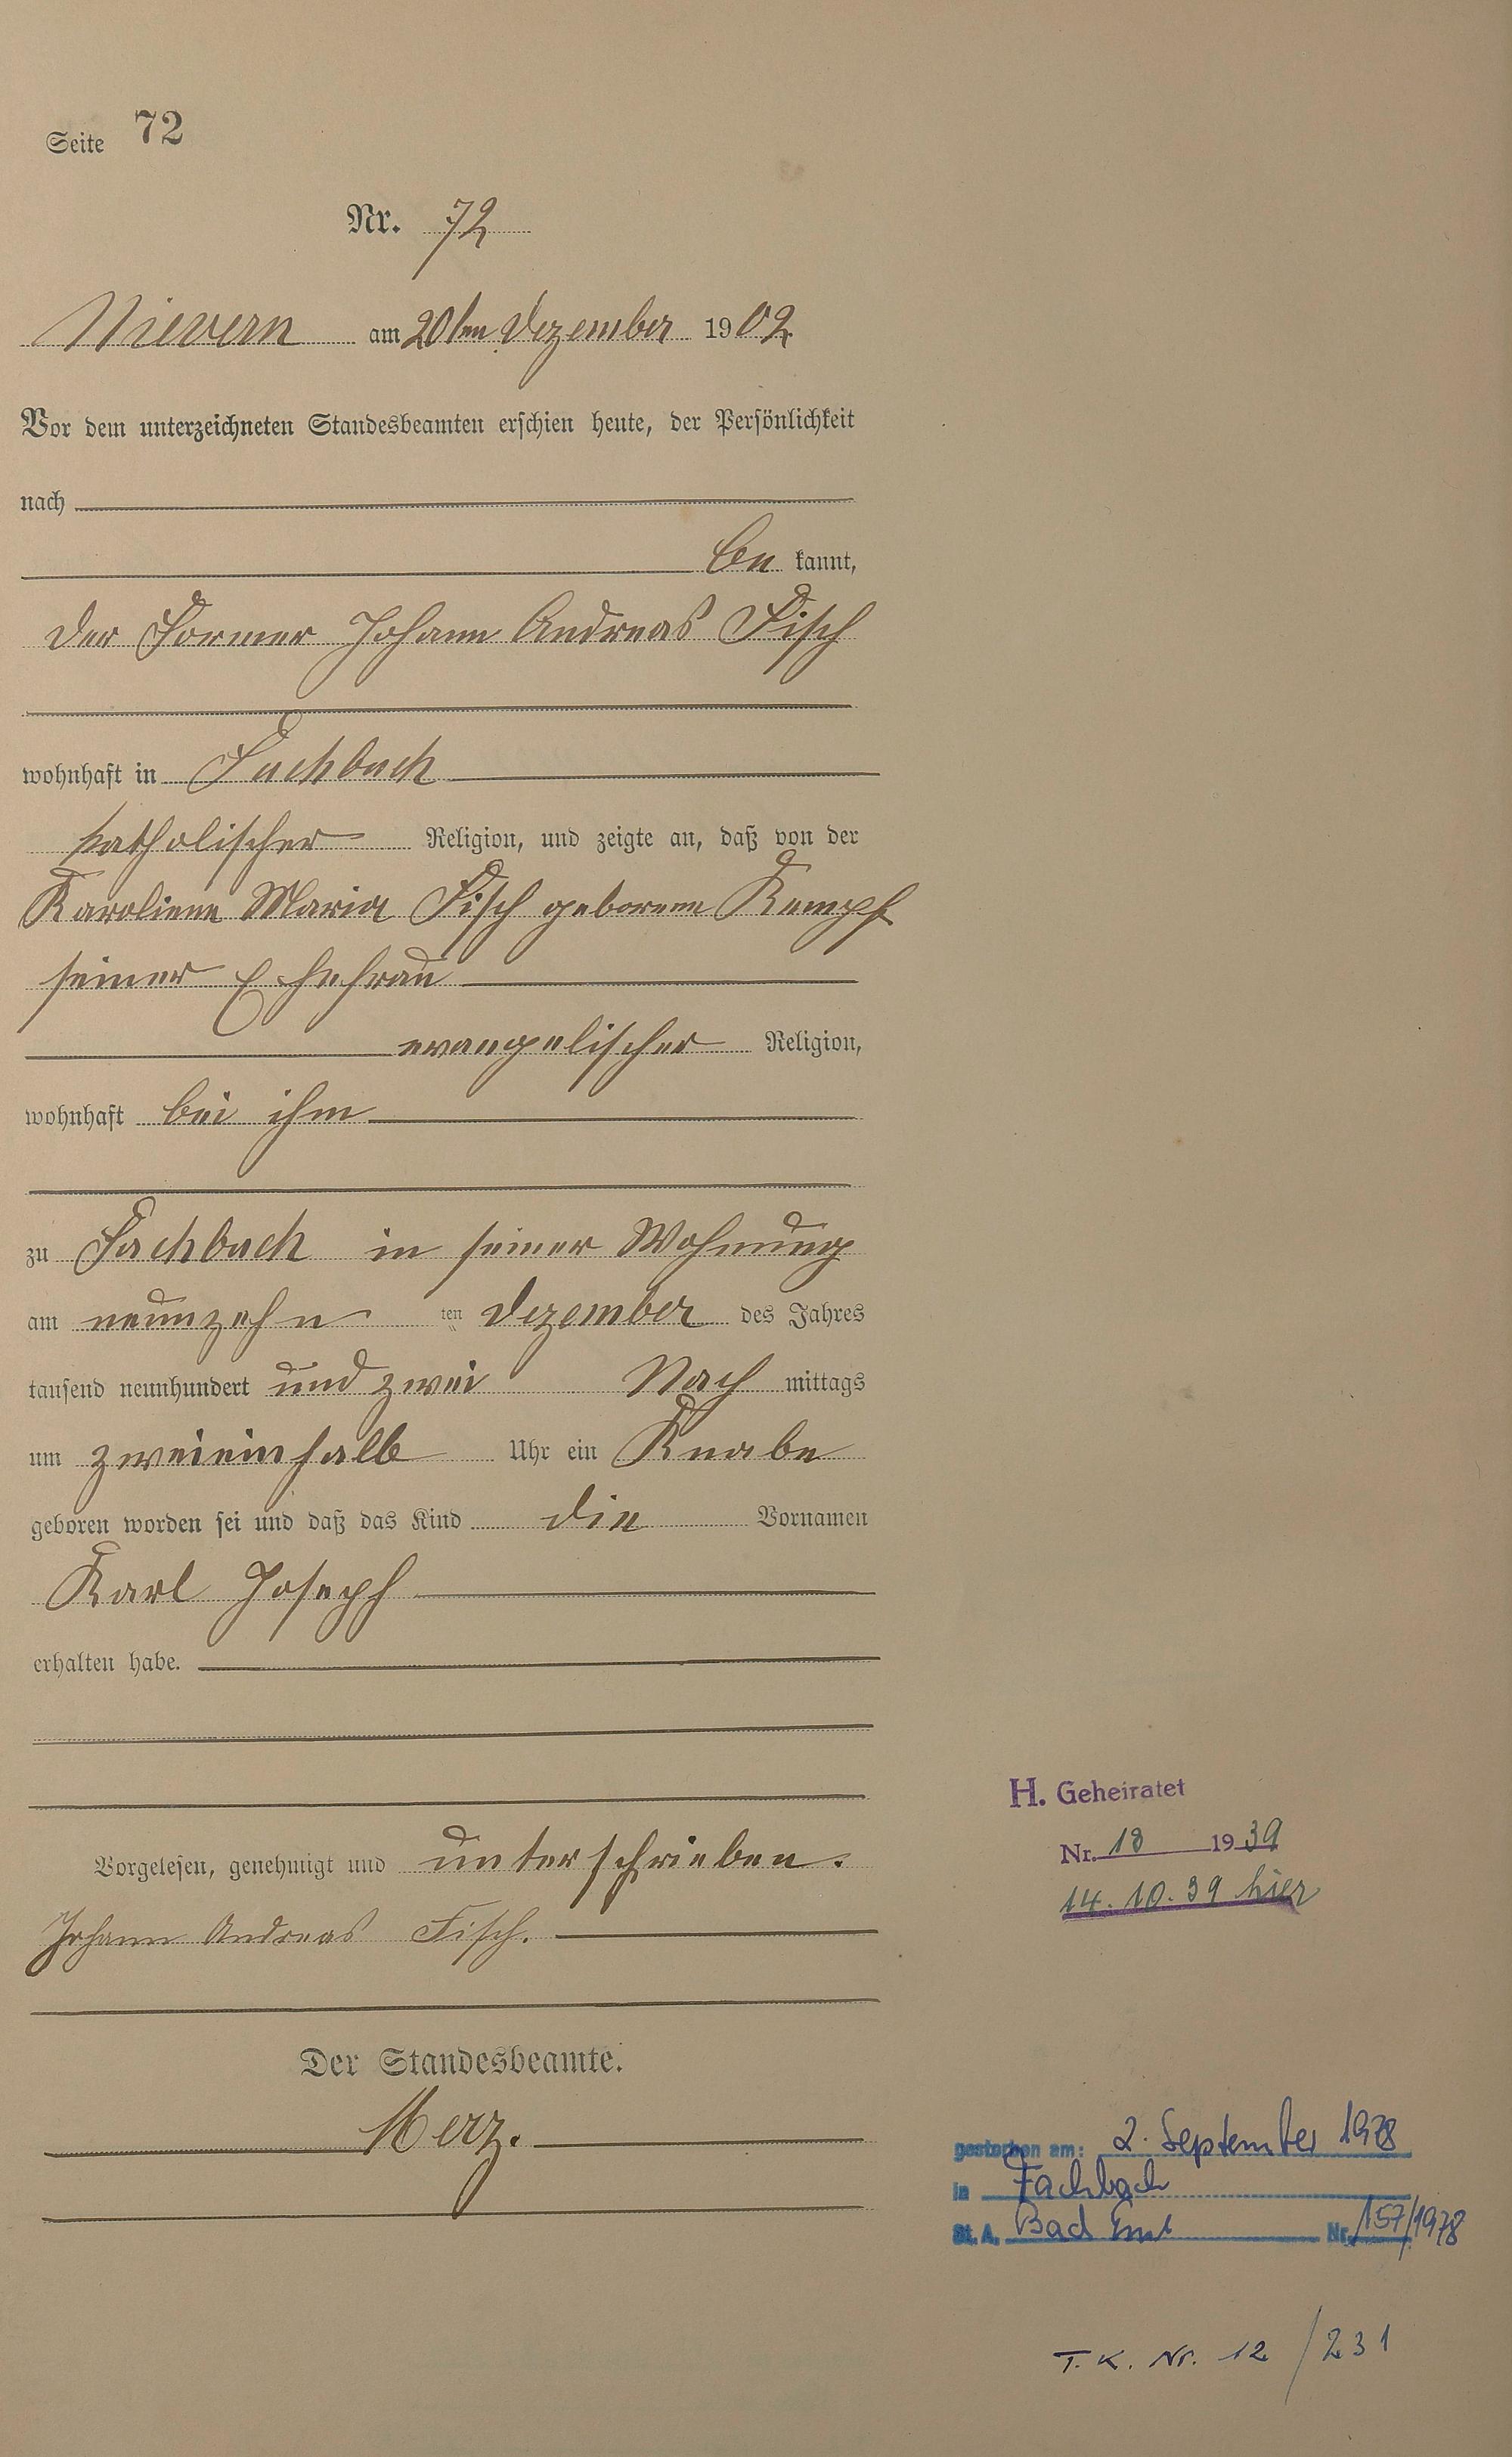 Seite 72
Nr. 72
Nievern am 20ten Dezember 1902
Vor dem unterzeichneten Standesbeamten erschien heute, der Persönlichkeit
nach
be kannt,
der Former Johann Andreas Fisch
wohnhaft in Fachbach
katholischer Religion, und zeigte an, daß von der
Karoliene Maria Fisch geborene Kempf
seiner Ehefrau
evangelischer Religion,
wohnhaft bei ihm
zu Fachbach in seiner Wohnung
am neunzehn ten Dezember des Jahres
tausend neunhundert und zwei Nach mittags
um zweieinhalb Uhr ein Knabe
geboren worden sei und daß das Kind die Vornamen
Karl Joseph
erhalten habe.
Vorgelesen, genehmigt und unterschrieben.
Johann Andreas Fisch.
Der Standesbeamte.
Merz.
H. Geheiratet
Nr. 18 1939
14.10.39 hier
gestorben am: 2. September 1978
in Fachbach
St. A. Bad Ems Nr. 157/1978
T. K. Nr. 12 / 231